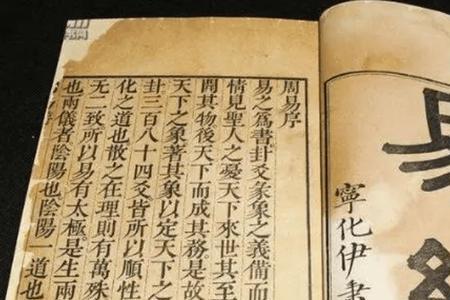 寧化伊
周易序
易之爲書卦爻彖象之義備而
情見聖人之憂天下來世其至
開其物後天下而成其務是故
天下之象著其象以定天下之
卦三百八十四爻皆所以順性
化之道也散之在理則有萬殊
无二致所以易有太極是生兩
也兩儀者陰陽也陰陽一道也